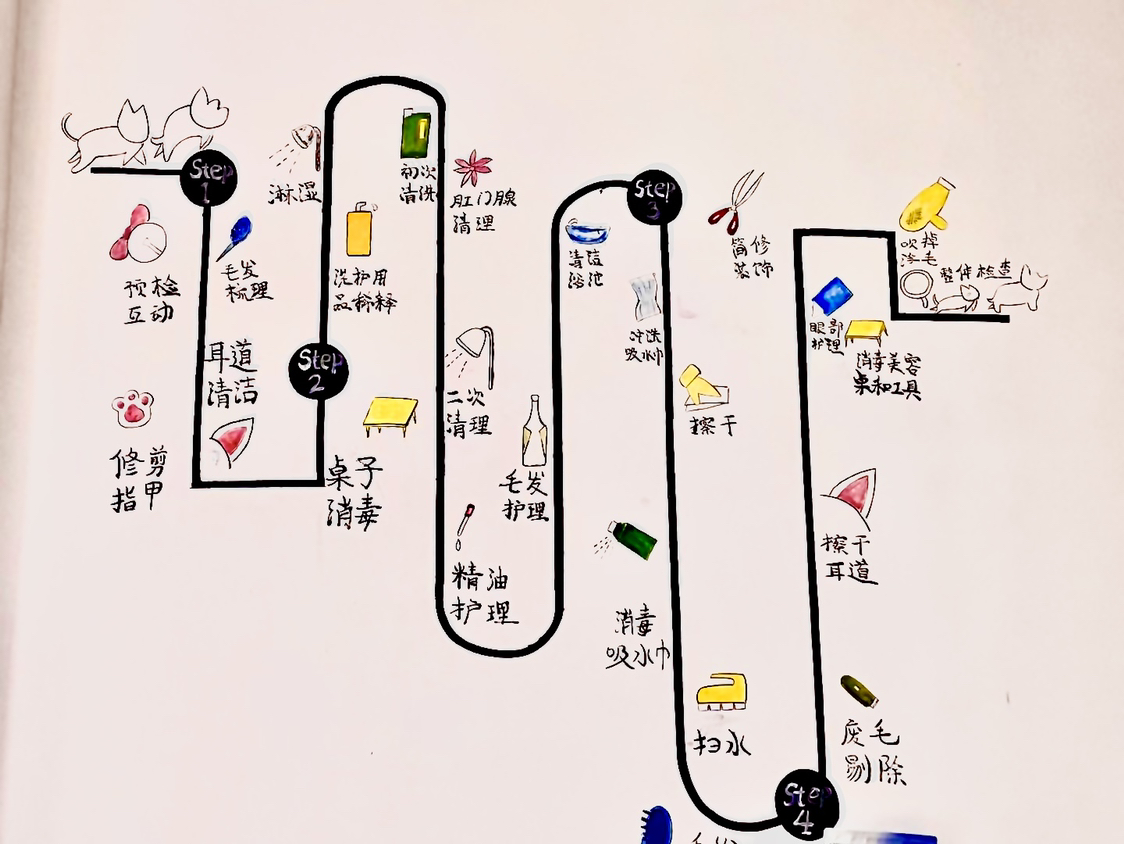 Step
1
预检
互动
毛发
梳理
修剪
指甲
耳道
清洁
Step
2
桌子
消毒
洗护用
品稀释
淋湿
初次
清洗
肛门腺
清理
二次
清理
精油
护理
毛发
护理
清洁
浴池
Step
3
冲洗
吸水巾
擦干
消毒
吸水巾
扫水
Step
4
废毛
剔除
擦干
耳道
眼部
护理
消毒美容
桌和工具
简修
装饰
吹掉
浮毛
整体检查